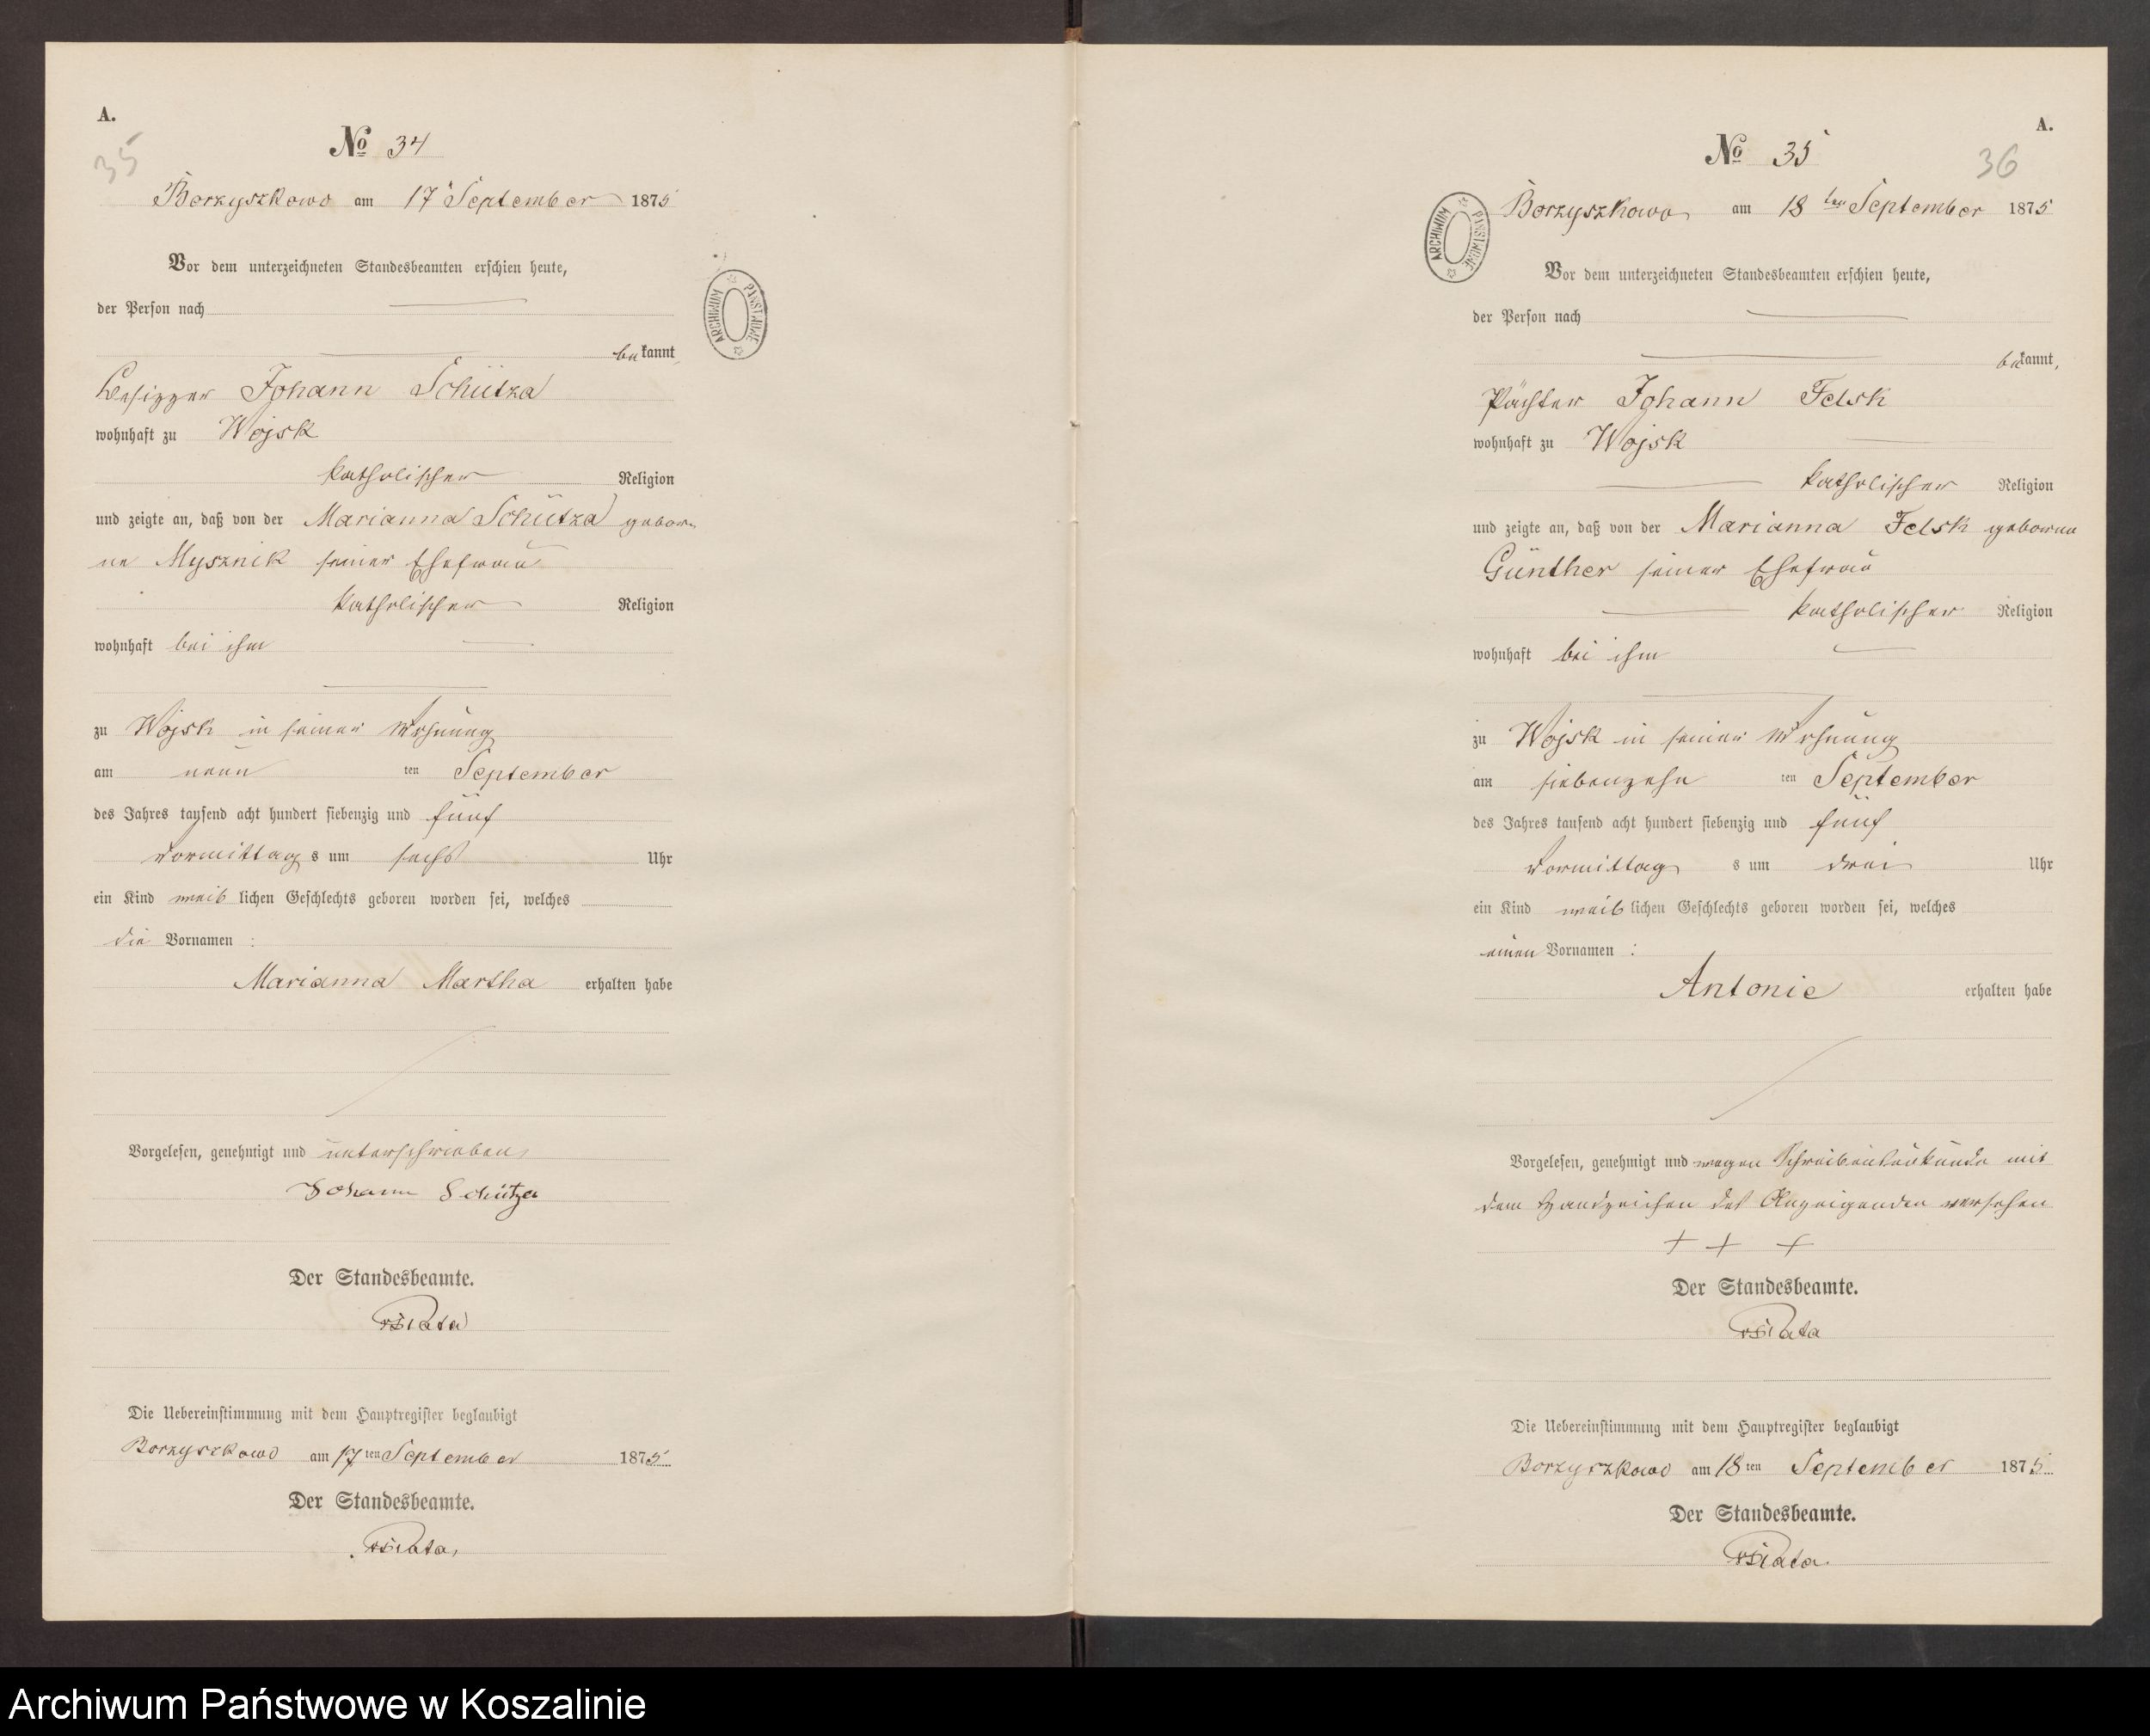 A.
35
No 34
Borzyszkowo am 17 September 1875
Vor dem unterzeichneten Standesbeamten erschien heute,
der Person nach
bekannt,
Besitzer Johann Schütza
wohnhaft zu Wojsk
katholischer Religion
und zeigte an, daß von der Marianna Schütza gebor-
ne Mysznik seiner Ehefrau
katholischer Religion
wohnhaft bei ihm
zu Wojsk in seiner Wohnung
am neun ten September
des Jahres tausend acht hundert siebenzig und fünf
Vormittags um sechs Uhr
ein Kind weiblichen Geschlechts geboren worden sei, welches
die Vornamen :
Marianna Martha erhalten habe
Vorgelesen, genehmigt und unterschrieben
Johann Schütza
Der Standesbeamte.
Die Uebereinstimmung mit dem Hauptregister beglaubigt
Borzyszkowo am 17ten September 1875
Der Standesbeamte.
ARCHIWUM PAŃSTWOWE
A.
36
No 35
Borzyszkowo am 18ten September 1875
Vor dem unterzeichneten Standesbeamten erschien heute,
der Person nach
bekannt,
Pächter Johann Felsk
wohnhaft zu Wojsk
katholischer Religion
und zeigte an, daß von der Marianna Felsk geborne
Günther seiner Ehefrau
katholischer Religion
wohnhaft bei ihm
zu Wojsk in seiner Wohnung
am siebenzehn ten September
des Jahres tausend acht hundert siebenzig und fünf
Vormittags um drei Uhr
ein Kind weiblichen Geschlechts geboren worden sei, welches
einen Vornamen :
Antonie erhalten habe
Vorgelesen, genehmigt und wegen Schreibensunkunde mit
dem Handzeichen des Anzeigenden versehen
+ + +
Der Standesbeamte.
Die Uebereinstimmung mit dem Hauptregister beglaubigt
Borzyszkowo am 18ten September 1875
Der Standesbeamte.
ARCHIWUM PAŃSTWOWE
Archiwum Państwowe w Koszalinie